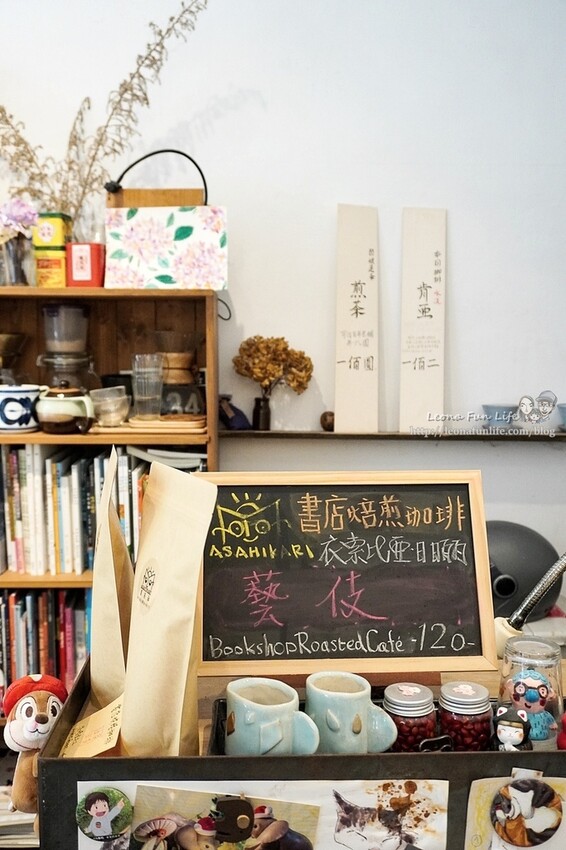 煎茶
一佰圓
肯亞
一佰二
Leona Fun Life
http://leonafunlife.com/blog
書店焙煎珈琲
ASAHIKARI
衣索比亞日曬
藝伎
Bookshop Roasted Café -120-